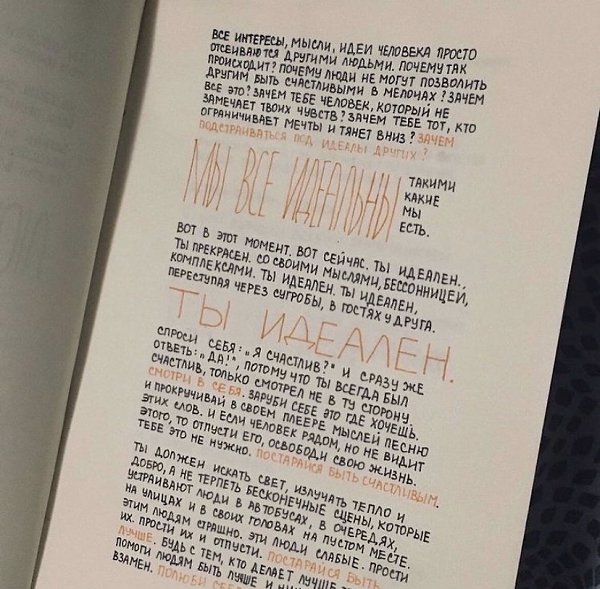 ВСЕ ИНТЕРЕСЫ, МЫСЛИ, ИДЕИ ЧЕЛОВЕКА ПРОСТО
ОТСЕИВАЮТСЯ ДРУГИМИ ЛЮДЬМИ. ПОЧЕМУ ТАК
ПРОИСХОДИТ? ПОЧЕМУ ЛЮДИ НЕ МОГУТ ПОЗВОЛИТЬ
ДРУГИМ БЫТЬ СЧАСТЛИВЫМИ В МЕЛОЧАХ? ЗАЧЕМ
ВСЕ ЭТО? ЗАЧЕМ ТЕБЕ ЧЕЛОВЕК, КОТОРЫЙ НЕ
ЗАМЕЧАЕТ ТВОИХ ЧУВСТВ? ЗАЧЕМ ТЕБЕ ТОТ, КТО
ОГРАНИЧИВАЕТ МЕЧТЫ И ТЯНЕТ ВНИЗ? ЗАЧЕМ
ПОДСТРАИВАТЬСЯ ПОД ИДЕАЛЫ ДРУГИХ?
МЫ ВСЕ ИДЕАЛЬНЫ
ТАКИМИ
КАКИЕ
МЫ
ЕСТЬ.
ВОТ В ЭТОТ МОМЕНТ. ВОТ СЕЙЧАС. ТЫ ИДЕАЛЕН.
ТЫ ПРЕКРАСЕН. СО СВОИМИ МЫСЛЯМИ, БЕССОННИЦЕЙ,
КОМПЛЕКСАМИ. ТЫ ИДЕАЛЕН. ТЫ ИДЕАЛЕН,
ПЕРЕСТУПАЯ ЧЕРЕЗ СУГРОБЫ, В ГОСТЯХ У ДРУГА.
ТЫ ИДЕАЛЕН.
СПРОСИ СЕБЯ: „Я СЧАСТЛИВ?" И СРАЗУ ЖЕ
ОТВЕТЬ: „ДА!", ПОТОМУ ЧТО ТЫ ВСЕГДА БЫЛ
СЧАСТЛИВ, ТОЛЬКО СМОТРЕЛ НЕ В ТУ СТОРОНУ.
СМОТРИ В СЕБЯ. ЗАРУБИ СЕБЕ ЭТО ГДЕ ХОЧЕШЬ.
И ПРОКРУЧИВАЙ В СВОЕМ ПЛЕЕРЕ МЫСЛЕЙ ПЕСНЮ
ЭТИХ СЛОВ. И ЕСЛИ ЧЕЛОВЕК РЯДОМ, НО НЕ ВИДИТ
ЭТОГО, ТО ОТПУСТИ ЕГО, ОСВОБОДИ СВОЮ ЖИЗНЬ.
ТЕБЕ ЭТО НЕ НУЖНО. ПОСТАРАЙСЯ БЫТЬ СЧАСТЛИВЫМ.
ТЫ ДОЛЖЕН ИСКАТЬ СВЕТ, ИЗЛУЧАТЬ ТЕПЛО И
ДОБРО, А НЕ ТЕРПЕТЬ БЕСКОНЕЧНЫЕ СЦЕНЫ, КОТОРЫЕ
УСТРАИВАЮТ ЛЮДИ В АВТОБУСАХ, В ОЧЕРЕДЯХ,
НА УЛИЦАХ И В СВОИХ ГОЛОВАХ НА ПУСТОМ МЕСТЕ.
ЭТИМ ЛЮДЯМ СТРАШНО. ЭТИ ЛЮДИ СЛАБЫЕ. ПРОСТИ
ИХ. ПРОСТИ ИХ И ОТПУСТИ. ПОСТАРАЙСЯ БЫТЬ
ЛУЧШЕ. БУДЬ С ТЕМ, КТО ДЕЛАЕТ ЛУЧШЕ
ПОМОГИ ЛЮДЯМ БЫТЬ ЛУЧШЕ И
ВЗАМЕН. ПОЛЮБИ